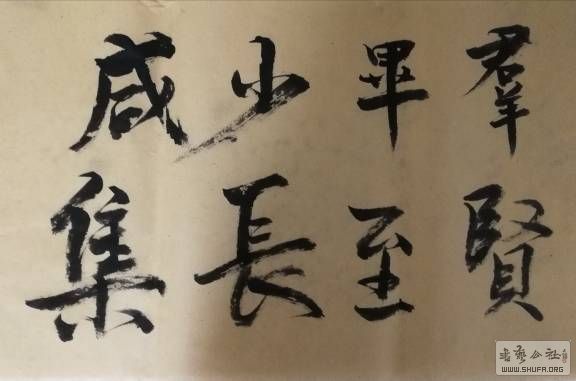 羣賢
畢至
少長
咸集
書藝公社
WWW.SHUFA.ORG